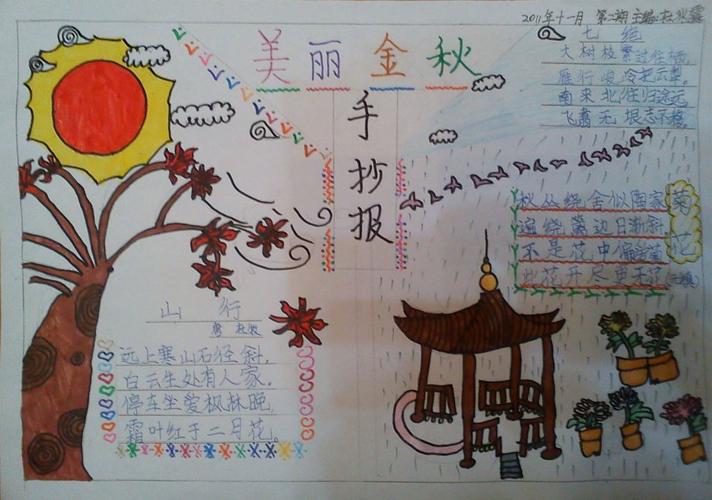 2011年十一月 第二期 主编:杜
美丽金秋
手抄报
七绝
大树枝繁过住栖,
雁行
南来北往归途远,
飞翥无垠志不移
菊花
秋丛绕舍似陶家
遍绕篱边日渐斜
不是花中偏爱菊
此花开尽更无花(元稹)
山行
杜牧
远上寒山石径斜,
白云生处有人家。
停车坐爱枫林晚,
霜叶红于二月花。